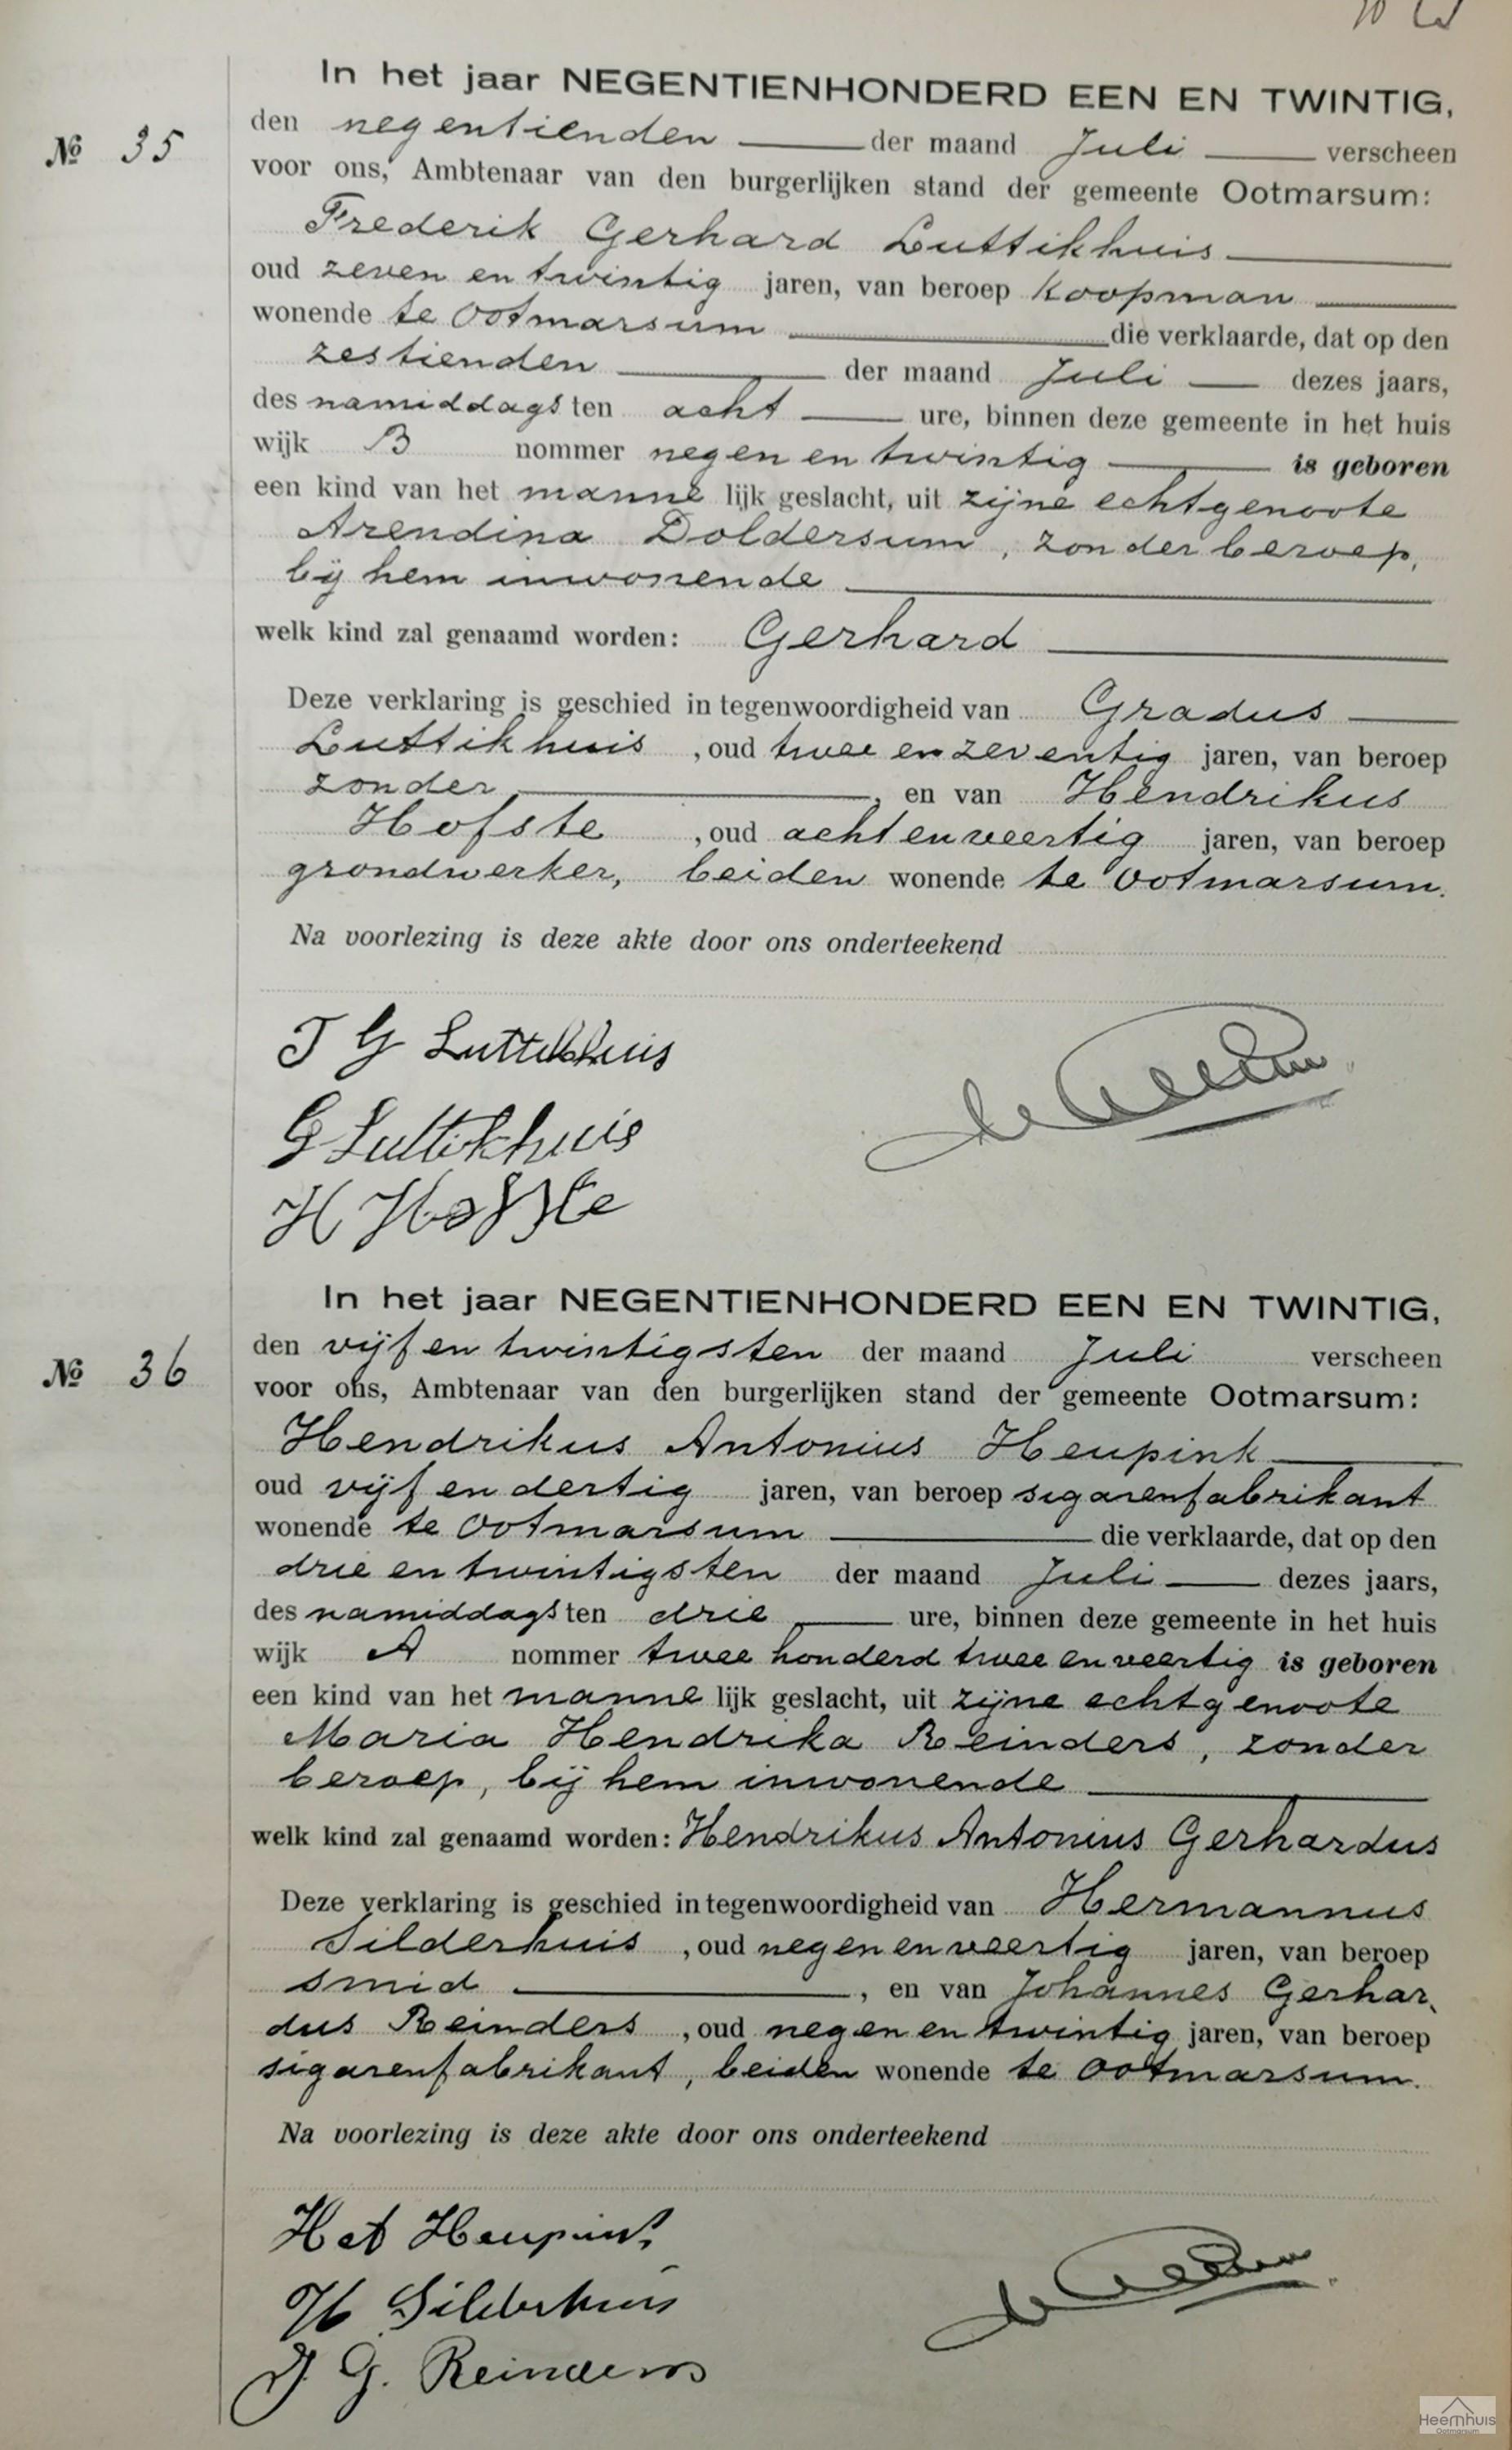 In het jaar NEGENTIENHONDERD EEN EN TWINTIG,
№ 35
den negentienden der maand Juli verscheen
voor ons, Ambtenaar van den burgerlijken stand der gemeente Ootmarsum:
Frederik Gerhard Luttikhuis
oud zeven en twintig jaren, van beroep koopman
wonende te Ootmarsum die verklaarde, dat op den
zestienden der maand Juli dezes jaars,
des namiddags ten acht ure, binnen deze gemeente in het huis
wijk B nommer negen en twintig is geboren
een kind van het mannelijk geslacht, uit zijne echtgenoote
Arendina Doldersum, zonder beroep,
bij hem inwonende
welk kind zal genaamd worden: Gerhard
Deze verklaring is geschied in tegenwoordigheid van Gradus
Luttikhuis, oud twee en zeventig jaren, van beroep
zonder, en van Hendrikus
Hofste, oud acht en veertig jaren, van beroep
grondwerker, beiden wonende te Ootmarsum.
Na voorlezing is deze akte door ons onderteekend
G Luttikhuis
H Hofste
In het jaar NEGENTIENHONDERD EEN EN TWINTIG,
№ 36
den vijf en twintigsten der maand Juli verscheen
voor ons, Ambtenaar van den burgerlijken stand der gemeente Ootmarsum:
Hendrikus Antonius Heupink
oud vijf en dertig jaren, van beroep sigarenfabrikant
wonende te Ootmarsum die verklaarde, dat op den
drie en twintigsten der maand Juli dezes jaars,
des namiddags ten drie ure, binnen deze gemeente in het huis
wijk A nommer twee honderd twee en veertig is geboren
een kind van het mannelijk geslacht, uit zijne echtgenoote
Maria Hendrika Reinders, zonder
beroep, bij hem inwonende
welk kind zal genaamd worden: Hendrikus Antonius Gerhardus
Deze verklaring is geschied in tegenwoordigheid van Hermannus
Silderhuis, oud negen en veertig jaren, van beroep
smid, en van Johannes Gerhar-
dus Reinders, oud negen en twintig jaren, van beroep
sigarenfabrikant, beiden wonende te Ootmarsum.
Na voorlezing is deze akte door ons onderteekend
Heupink
H Silderhuis
J. G. Reinders
Heemhuis
Ootmarsum